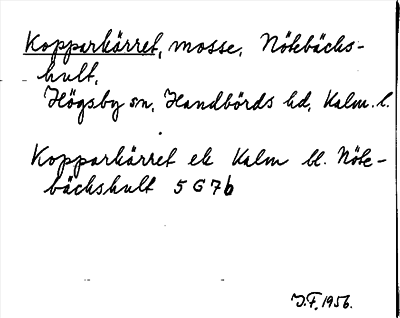 Kopparkärret, mosse, Nötebächs-
hult,
Högsby sn, Handbörds hd, Kalm. l.
Kopparkärret ek Kalm bl. Nöte-
bächshult 5 G 7 b
J.F. 1956.